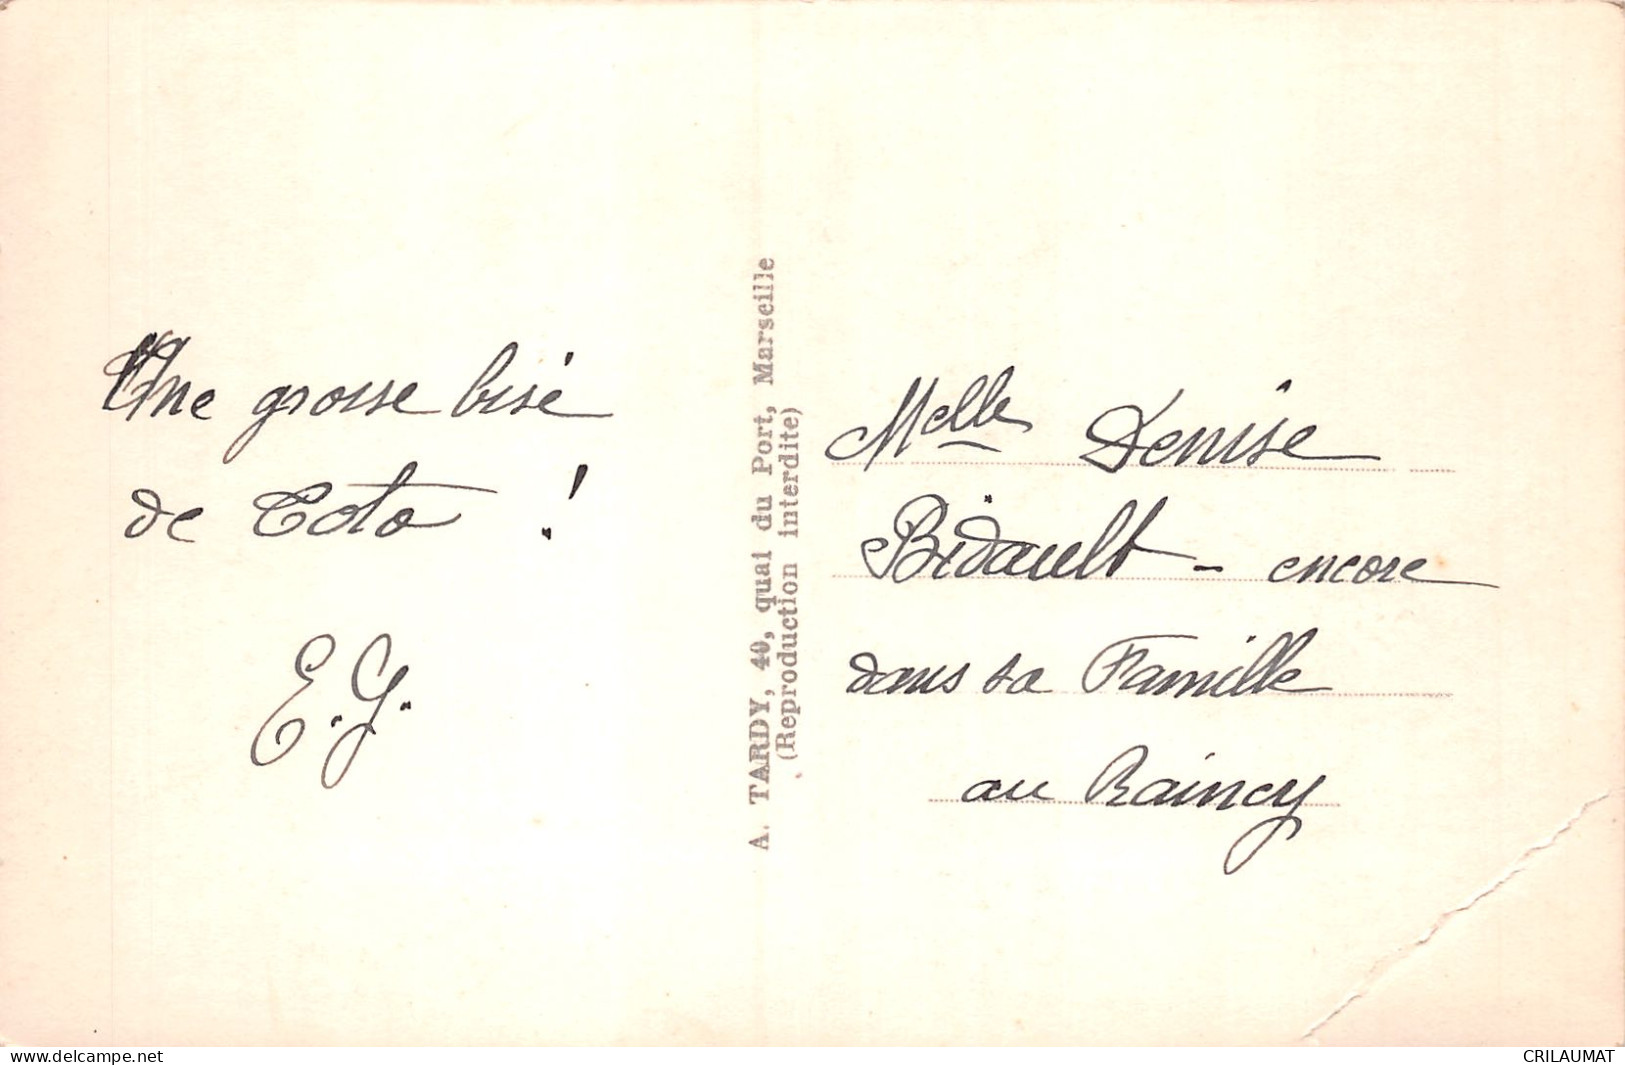 Une grosse bise
de Toto !
E. G.
A. TARDY, 40, quai du Port, Marseille
(Reproduction interdite)
Melle Denise
Bidault - encore
dans sa Famille
au Raincy
delcampe.net
CRILAUMAT